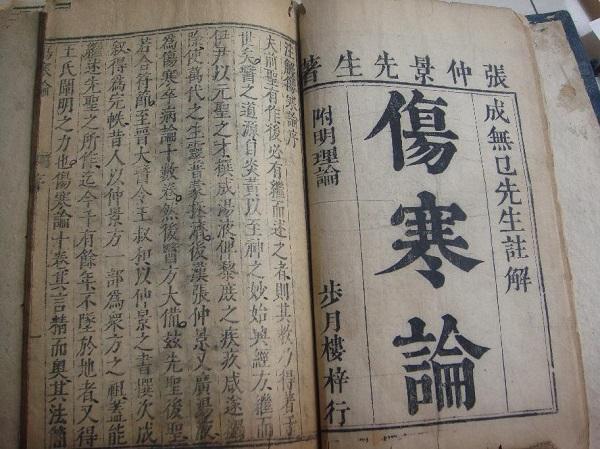 張仲景先生著
成無已先生註解
傷寒論
附明理論
步月樓梓行
注解傷寒論序
夫前聖有作後必有繼而述之者則其教乃得著于
世矣醫之道源自炎黃以至神之妙始興經方繼而
伊尹以元聖之才撰成湯液俾黎庶之疾疢咸遂蠲
除使萬代之生靈普蒙拯濟後漢張仲景又廣湯液
為傷寒卒病論十數卷然後醫方大備茲先聖後聖
若合符節至晉太醫令王叔和以仲景之書撰次成
敘得為完帙昔人以仲景方一部為眾方之祖蓋能
繼述先聖之所作迄今千有餘年不墜於地者又得
王氏闡明之力也傷寒論十卷其言精而奧其法簡
傷寒論